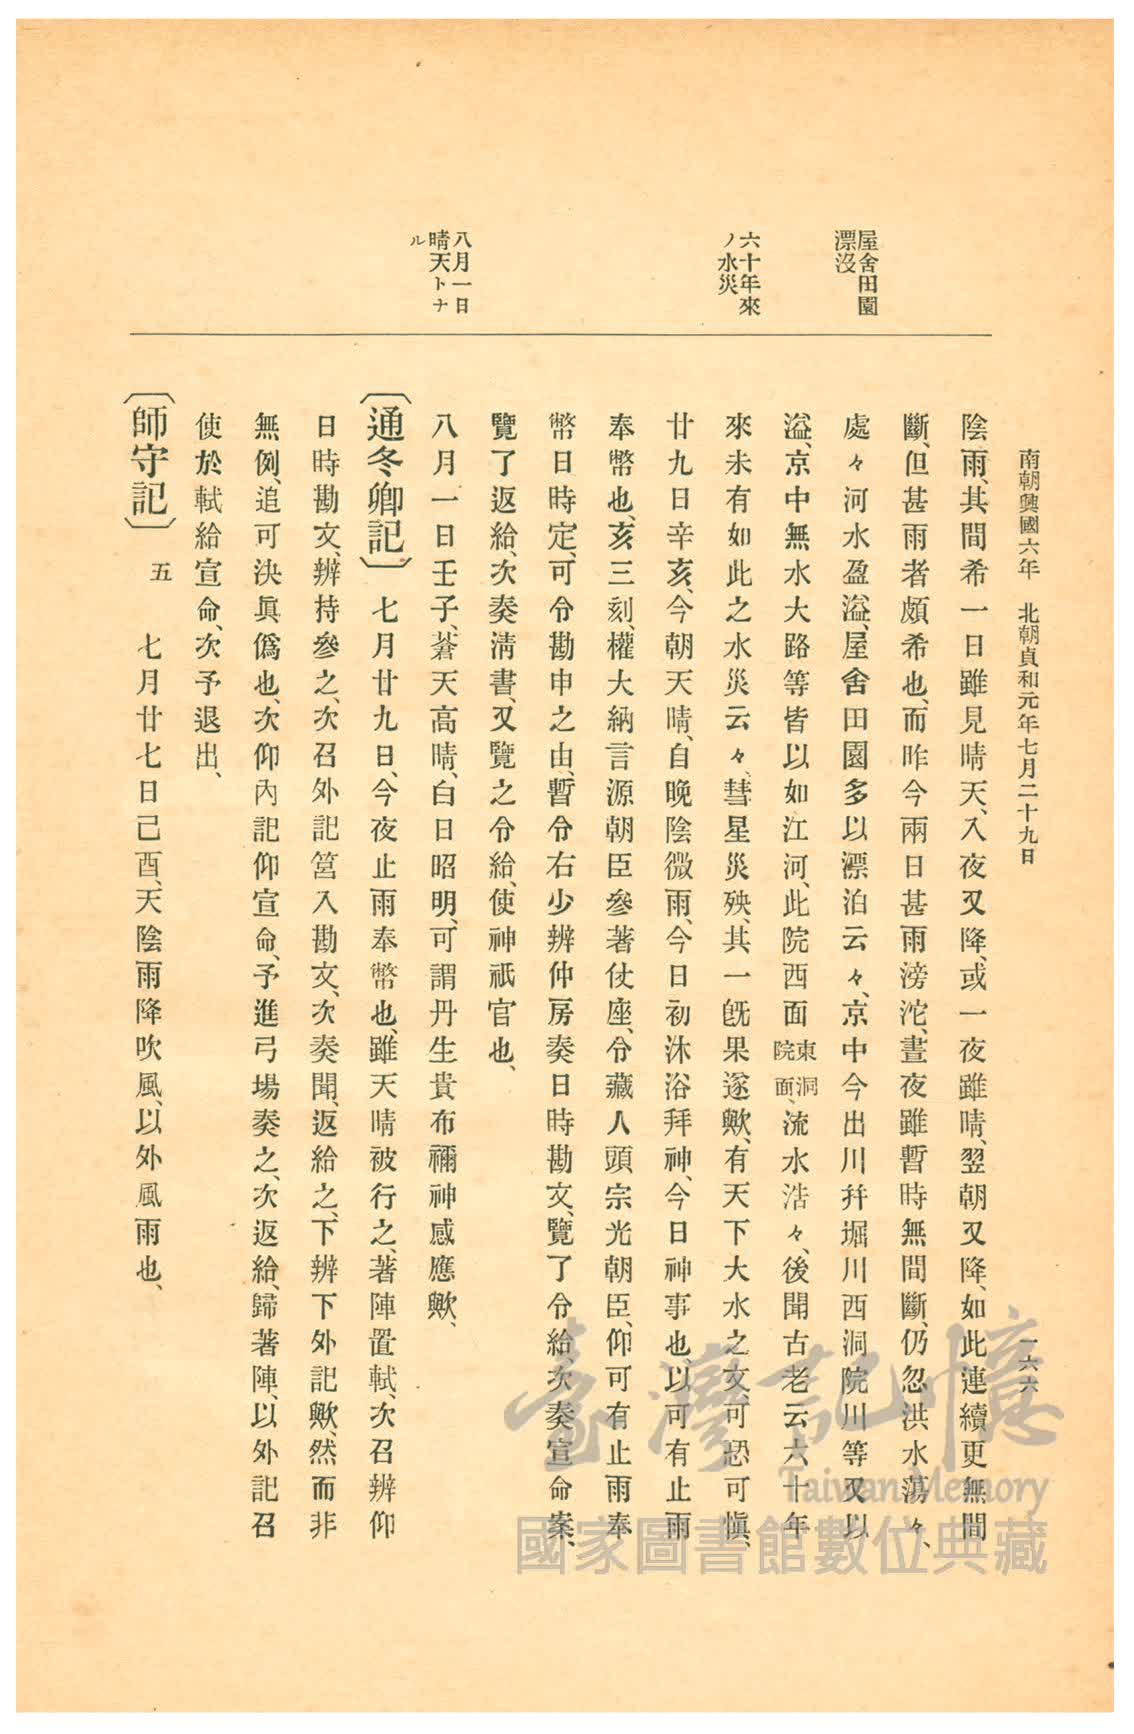 南朝興國六年　北朝貞和元年七月二十九日
一六六
屋舍田園
漂沒
六十年來
ノ水災
八月一日
晴天トナ
ル
陰雨、其間希一日雖見晴天、入夜又降、或一夜雖晴、翌朝又降、如此連續更無間
斷、但甚雨者頗希也、而昨今兩日甚雨滂沱、晝夜雖暫時無間斷、仍忽洪水蕩々、
處々河水盈溢、屋舍田園多以漂泊云々、京中今出川幷堀川西洞院川等又以
溢、京中無水大路等皆以如江河、此院西面東洞院面、流水浩々、後聞古老云六十年
來未有如此之水災云々、彗星災殃、其一旣果遂歟、有天下大水之文、可恐可愼、
廿九日辛亥、今朝天晴、自晚陰微雨、今日初沐浴拜神、今日神事也、以可有止雨
奉幣也、亥三刻、權大納言源朝臣參著仗座、令藏人頭宗光朝臣、仰可有止雨奉
幣日時定、可令勘申之由、暫令右少辨仲房奏日時勘文、覽了令給、次奏宣命案、
覽了返給、次奏淸書、又覽之令給、使神祇官也、
八月一日壬子、蒼天高晴、白日昭明、可謂丹生貴布禰神感應歟、
〔通冬卿記〕　七月廿九日、今夜止雨奉幣也、雖天晴被行之、著陣置軾、次召辨仰
日時勘文、辨持參之、次召外記筥入勘文、次奏聞、返給之、下辨下外記歟、然而非
無例、追可決眞僞也、次仰內記仰宣命、予進弓場奏之、次返給、歸著陣、以外記召
使於軾給宣命、次予退出、
〔師守記〕　五　七月廿七日己酉、天陰雨降吹風、以外風雨也、
臺灣記憶
Taiwan Memory
國家圖書館數位典藏